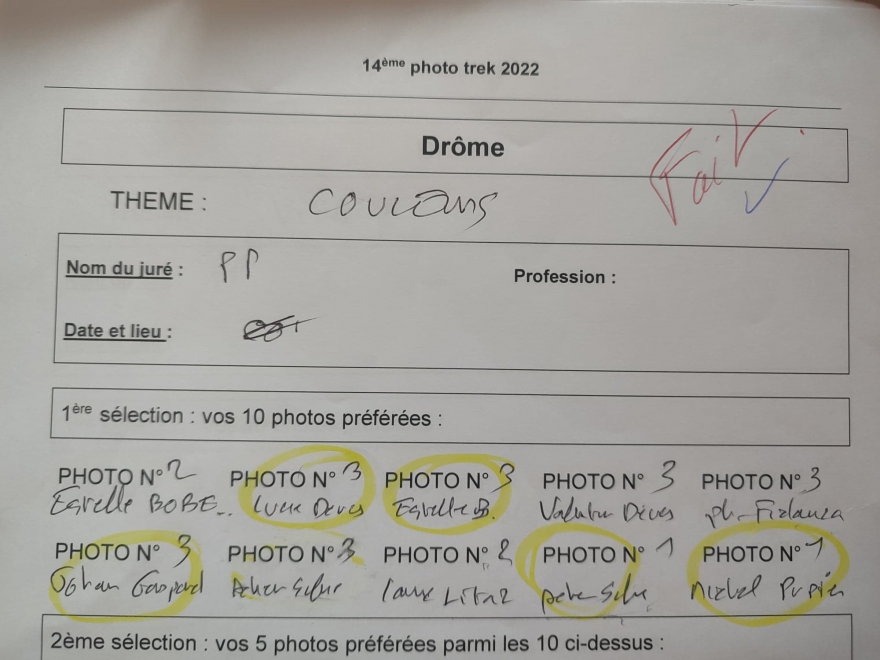 14ème photo trek 2022
Drôme
Fait
THEME :
Nom du juré : PP
Profession :
Date et lieu :
1ère sélection : vos 10 photos préférées :
PHOTO N° 2 PHOTO N° 3 PHOTO N° 3 PHOTO N° 3 PHOTO N° 3
Estelle BOBE Lucie Deves Estelle B. Valentin Deves ph.
PHOTO N° 3 PHOTO N° 3 PHOTO N° 2 PHOTO N° 1 PHOTO N° 1
Gaspard Michel Pupier
2ème sélection : vos 5 photos préférées parmi les 10 ci-dessus :